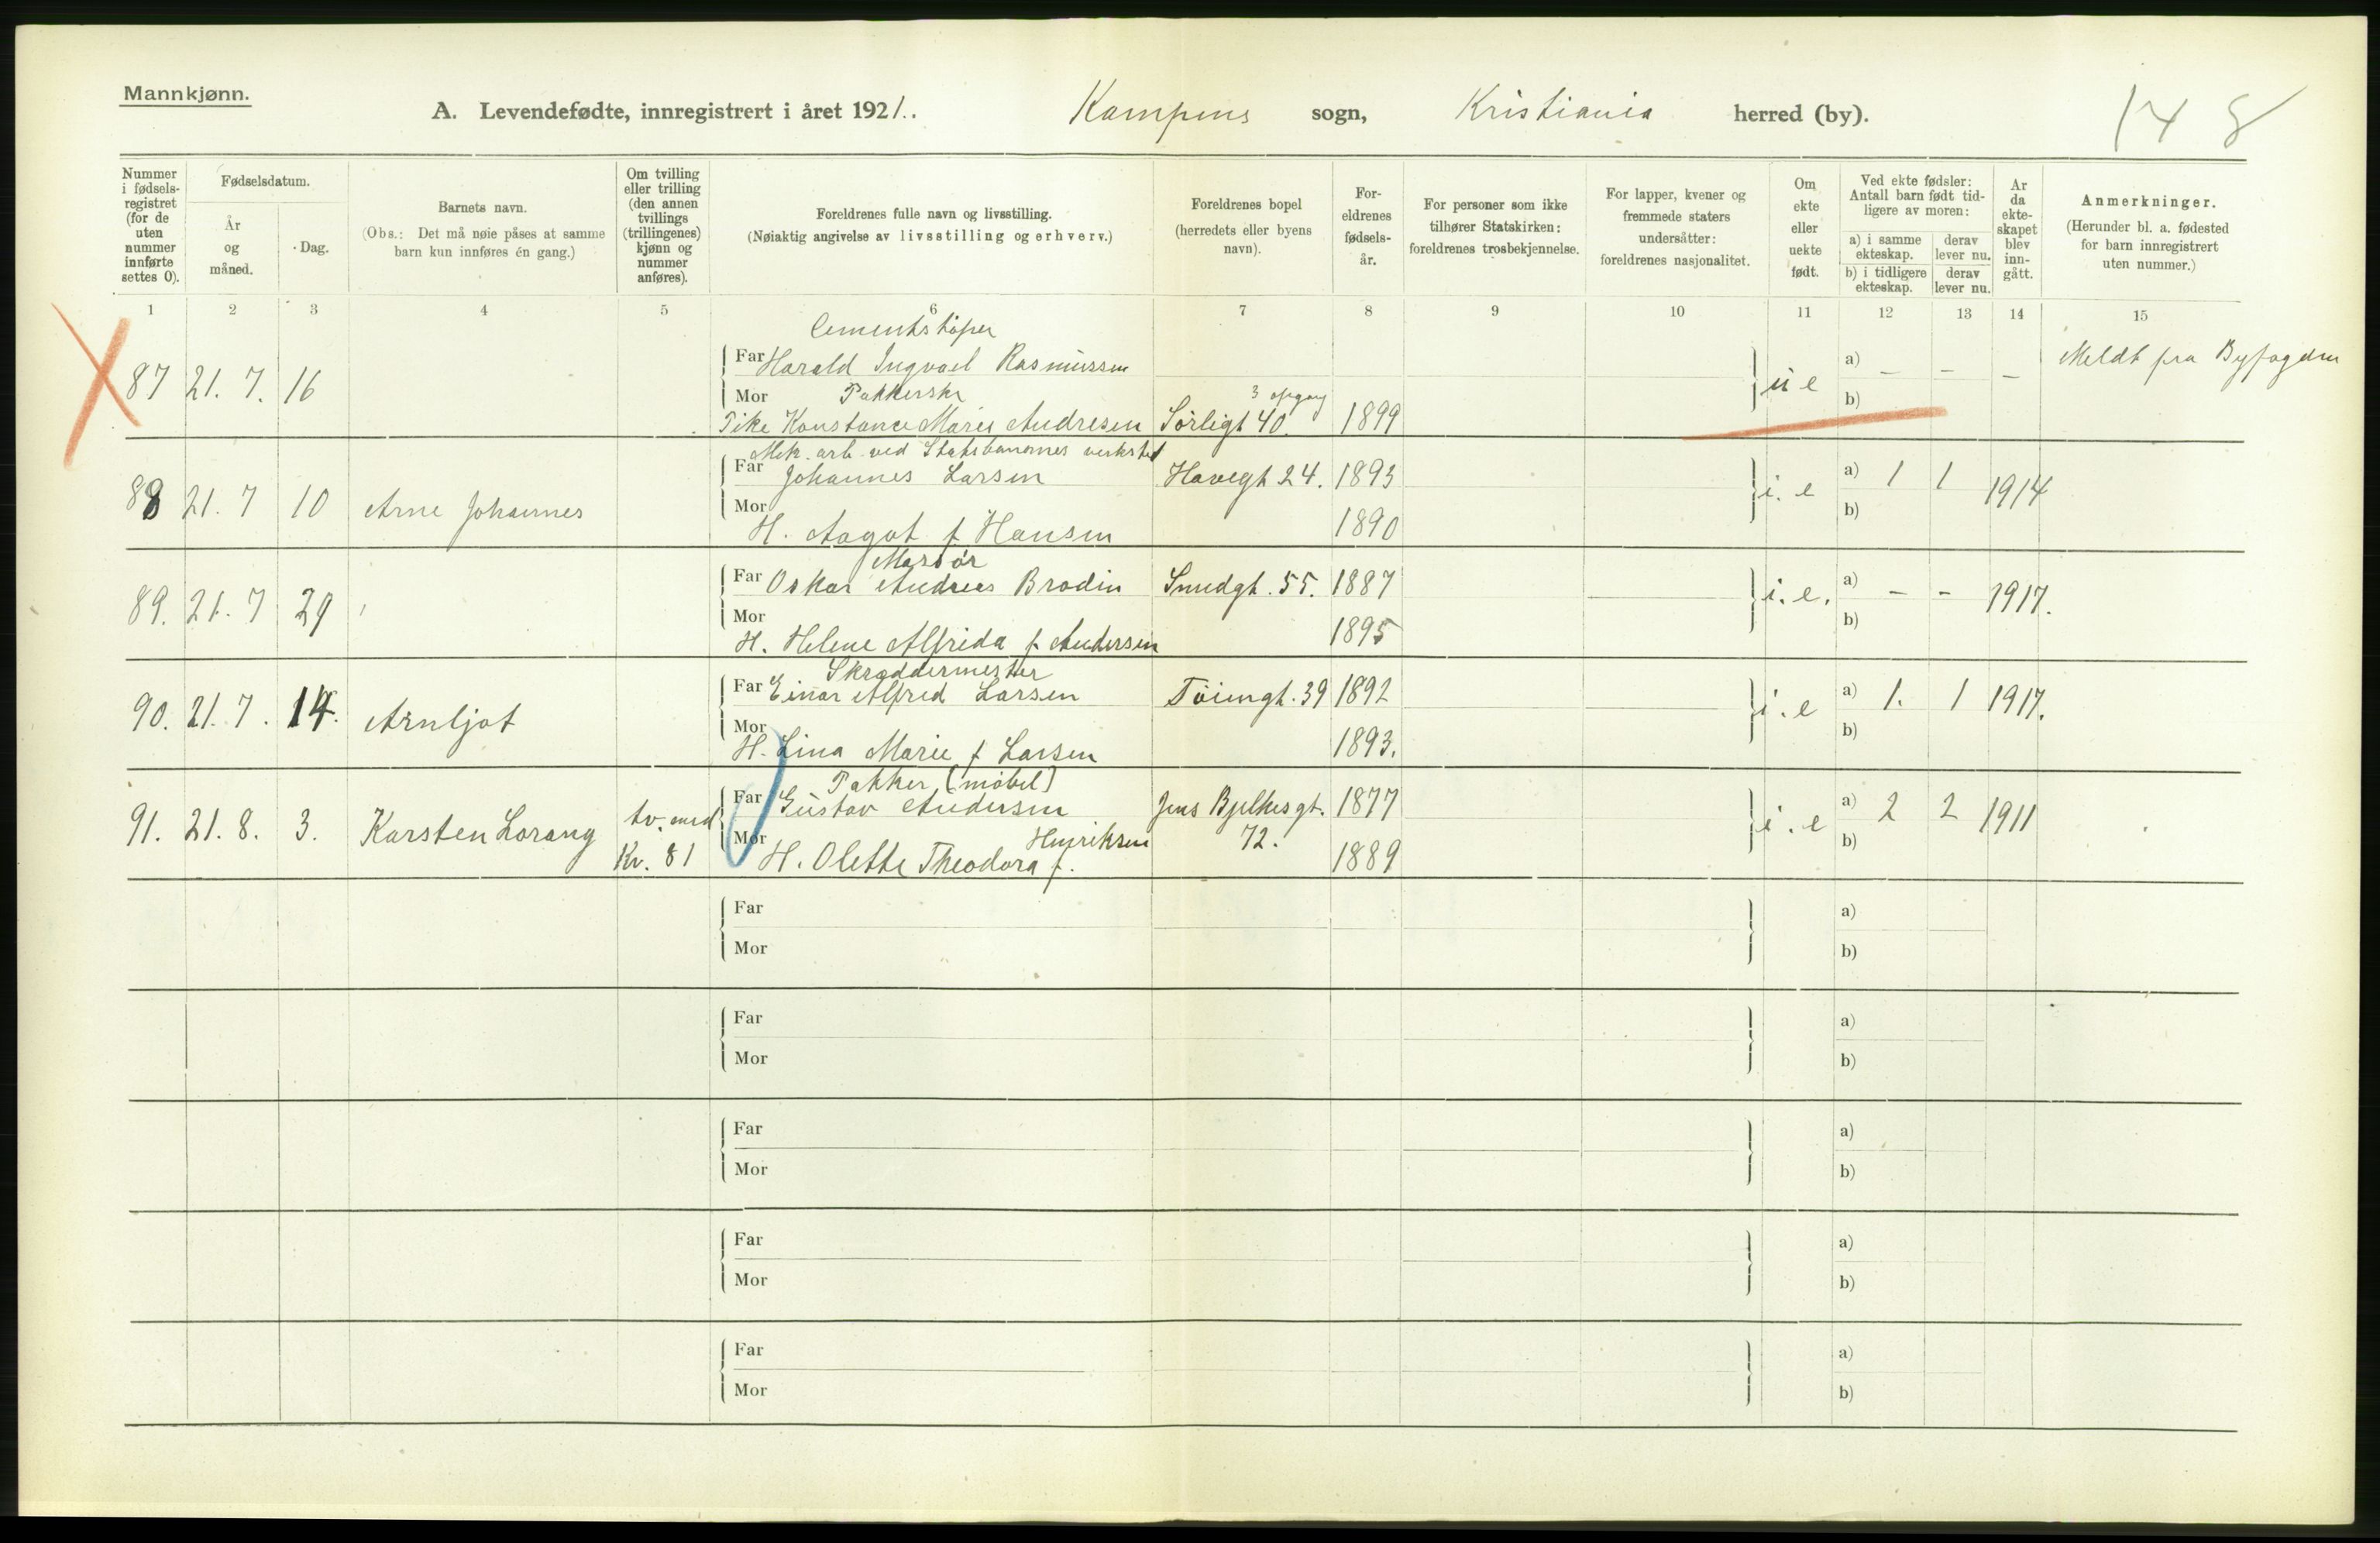 Mannkjønn.
A. Levendefødte, innregistrert i året 1921.. Kampens sogn, Kristiania herred (by).
148
Nummer i fødsels- registret (for de uten nummer innførte settes 0).
Fødselsdatum.
År og måned.
Dag.
Barnets navn.
(Obs.: Det må nøie påses at samme barn kun innføres én gang.)
Om tvilling eller trilling (den annen tvillings (trillingenes) kjønn og nummer anføres).
Foreldrenes fulle navn og livsstilling.
(Nøiaktig angivelse av livsstilling og erhverv.)
Foreldrenes bopel (herredets eller byens navn).
For- eldrenes fødsels- år.
For personer som ikke tilhører Statskirken: foreldrenes trosbekjennelse.
For lapper, kvener og fremmede staters undersåtter: foreldrenes nasjonalitet.
Om ekte eller uekte født.
Ved ekte fødsler: Antall barn født tid- ligere av moren:
a) i samme ekteskap. derav lever nu.
b) i tidligere ekteskap. derav lever nu.
År da ekte- skapet blev inn- gått.
Anmerkninger.
(Herunder bl. a. fødested for barn innregistrert uten nummer.)
1 2 3 4 5 6 7 8 9 10 11 12 13 14 15
Cementstøper
Far Harald Ingvael Rasmussen
Meldt fra Byfogden
87 21. 7. 16 ue a) – – –
Mor Pakkerske 3 opgang b)
Pike Konstance Marie Andresen Sørligt 40. 1899
Mek. arb. ved Statsbanernes verksted
Far Johannes Larsen Havegt 24. 1893
88 21. 7 10 Arne Johannes i. e a) 1 1 1914
Mor b)
H. Aagot f. Hansen 1890
Massør
Far Oskar Andreas Brodin Smedgt. 55. 1887
89. 21. 7 29 i. e. a) – – 1917.
Mor b)
H. Helene Alfrida f. Andersen 1895
Skræddermester
Far Einar Alfred Larsen Töiengt. 39 1892
90. 21. 7. 14. Arnljot i. e a) 1. 1 1917.
Mor b)
H. Lina Marie f. Larsen 1893.
Pakker (møbel)
Far Gustav Andersen Jens Bjelkesgt. 72. 1877
91. 21. 8. 3. Karsten Lorang tv. med Kv. 81 i. e a) 2 2 1911
Mor Henriksen b)
H. Olette Theodora f. 1889
Far a)
Mor b)
Far a)
Mor b)
Far a)
Mor b)
Far a)
Mor b)
Far a)
Mor b)